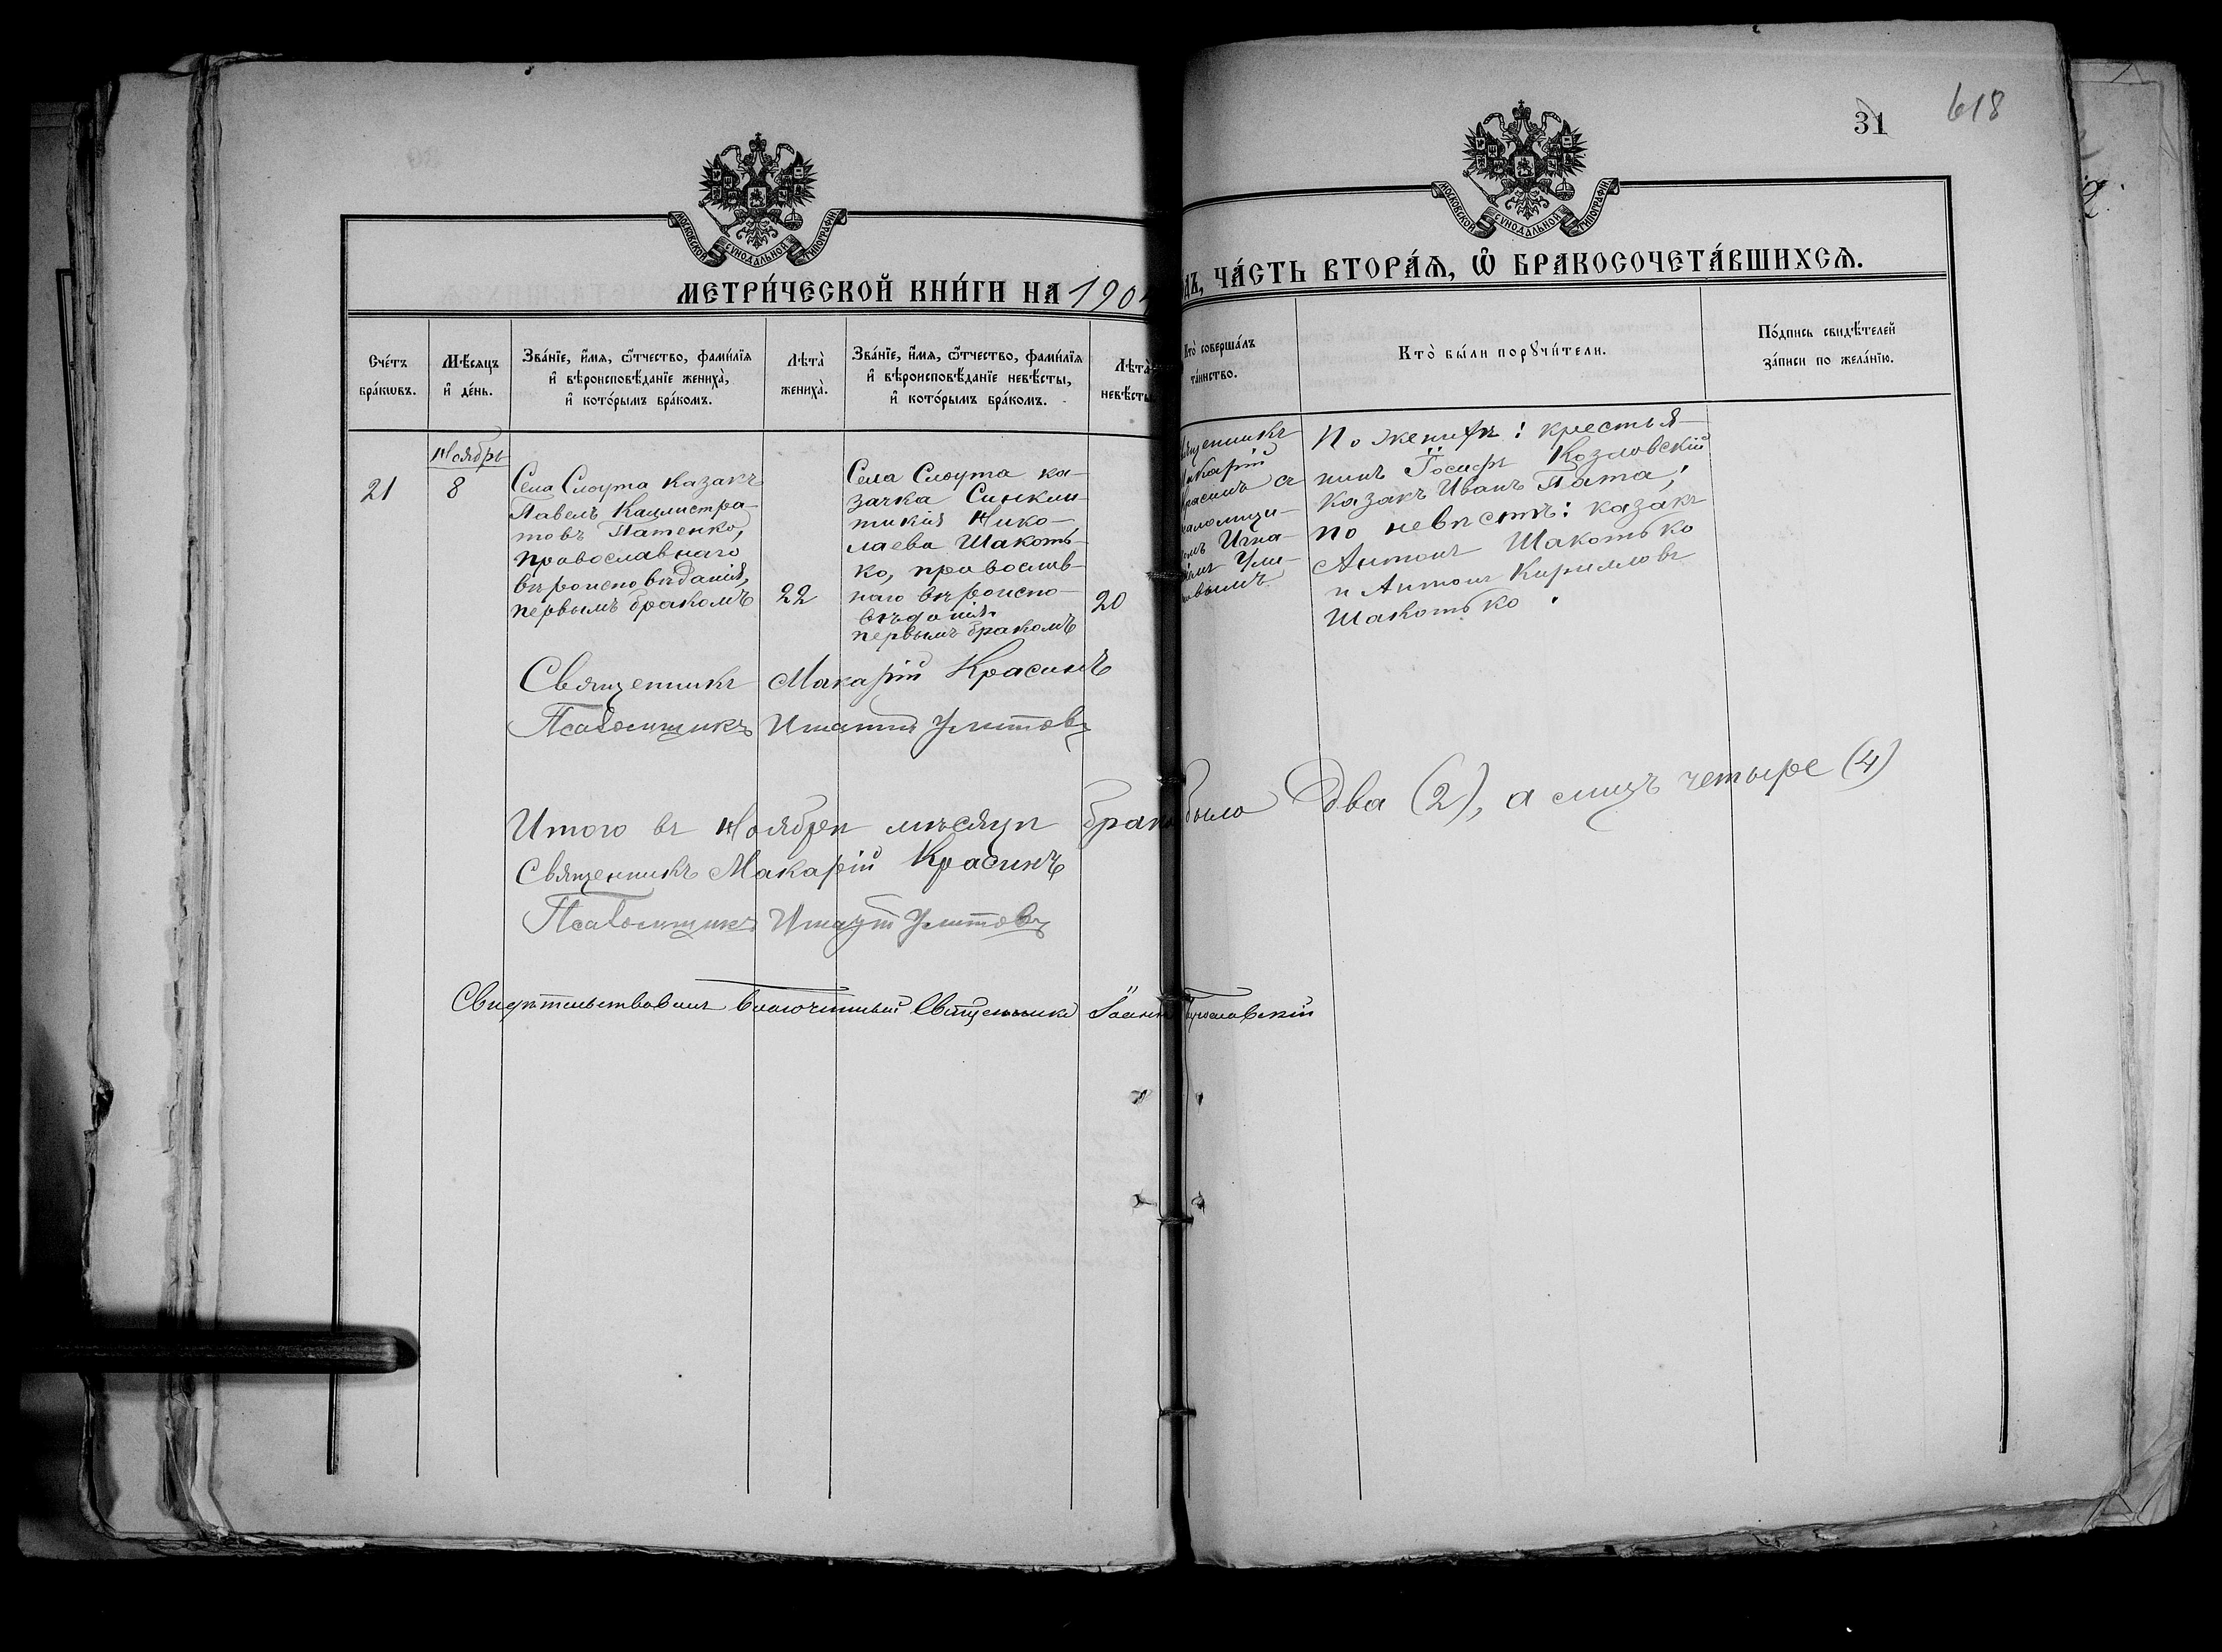 31
618
МОСКОВСКОЙ СѴНОДАЛЬНОЙ ТИПОГРАФІИ
МОСКОВСКОЙ СѴНОДАЛЬНОЙ ТИПОГРАФІИ
МЕТРИ́ЧЕСКОЙ КНИ́ГИ НА 190
ЧА́СТЬ ВТОРА́Ѧ, Ѿ БРАКОСОЧЕТА́ВШИХСѦ.
Сче́тъ бра́кѡвъ.
Мѣ́сяцъ и҆ де́нь.
Зва́нїе, и҆́мя, ѻ҆́тчество, фами́лїя
и҆ вѣроисповѣ́данїе жениха̀,
и҆ кото́рымъ бра́комъ.
Лѣта̀ жениха̀.
Зва́нїе, и҆́мя, ѻ҆́тчество, фами́лїя
и҆ вѣроисповѣ́данїе невѣ́сты,
и҆ кото́рымъ бра́комъ.
Лѣта̀
невѣсты
Кто̀ соверша́лъ
та́инство.
Кто̀ бы́ли порꙋчи́тели.
По́дпись свидѣ́телей
за́писи по жела́нїю.
21
Ноябрь
8
Села Слоута казакъ
Павелъ Каллистра-
товъ Патенко,
православнаго
вѣроисповѣданія,
первымъ бракомъ
22
Села Слоута ка-
зачка Синкли-
тикія Нико-
лаева Шакоть-
ко, православ-
наго вѣроиспо-
вѣданія
первымъ бракомъ
20
По женихѣ: крестья-
нинъ Іосифъ Козловскій
казакъ Иванъ Пата;
по невѣстѣ: казакъ
Антонъ Шакотько
и Антонъ Кирилловъ
Шакотько.
Священникъ Макарій Красинъ
Псаломщикъ Игнатій Улитовъ
Итого въ Ноябрѣ мѣсяцѣ было два (2), а лицъ четыре (4)
Священникъ Макарій Красинъ
Псаломщикъ Игнатій Улитовъ
Свидѣтельствовалъ Благочинный Священникъ Іоаннъ